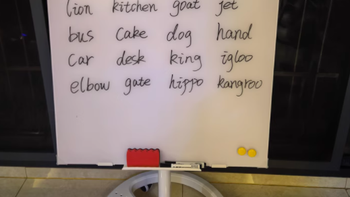 lion kitchen goat jet
bus cake dog hand
car desk king igloo
elbow gate hippo kangroo